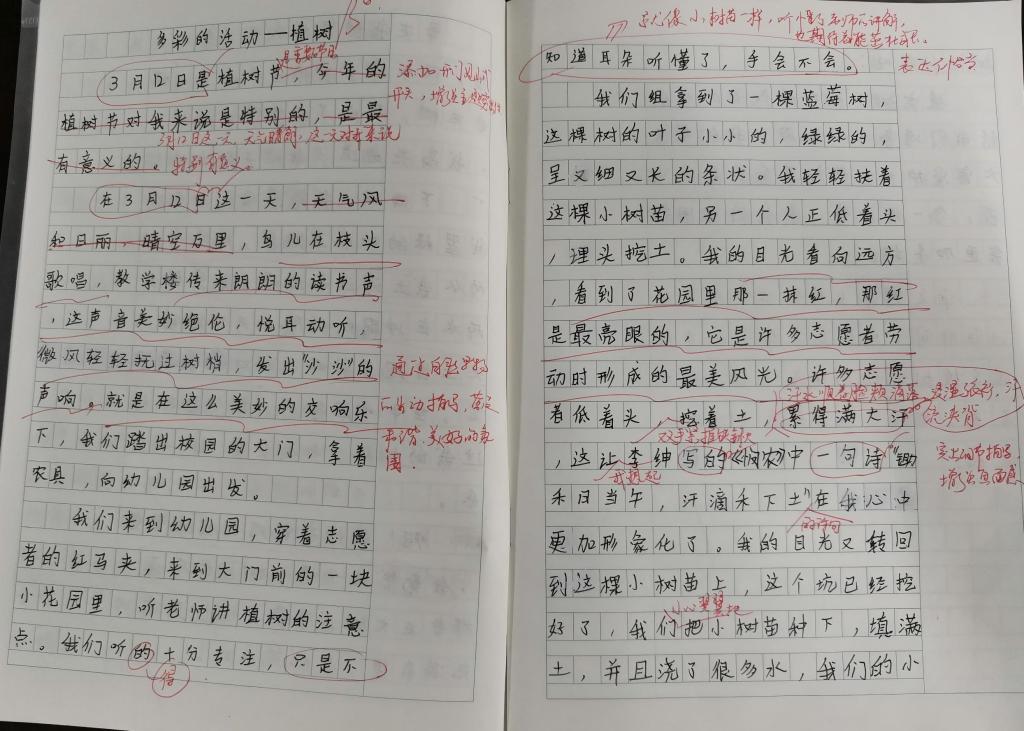 多彩的活动——植树
3月12日是植树节，今年的
植树节对我来说是特别的，是最
3月12日这一天，天气晴朗，这一天对我来说
有意义的。特别有意义。
在3月12日这一天，天气风
和日丽，晴空万里，鸟儿在枝头
歌唱，教学楼传来朗朗的读书声
，这声音美妙绝伦，悦耳动听，
微风轻轻抚过树梢，发出"沙沙"的
声响。就是在这么美妙的交响乐
下，我们踏出校园的大门，拿着
农具，向幼儿园出发。
我们来到幼儿园，穿着志愿
者的红马夹，来到大门前的一块
小花园里，听老师讲植树的注意
点。我们听的十分专注，只是不
得
通过自然景物
的生动描写，营造
和谐、美好的氛
围。
就像小树苗一样，听懂了老师的讲解，
知道耳朵听懂了，手会不会。
我们组拿到了一棵蓝莓树，
这棵树的叶子小小的，绿绿的，
呈又细又长的条状。我轻轻扶着
这棵小树苗，另一个人正低着头
，埋头挖土。我的目光看向远方
，看到了花园里那一抹红，那红
是最亮眼的，它是许多志愿者劳
动时形成的最美风光。许多志愿
汗水顺着脸颊滴落
者低着头，挖着土，累得满大汗
，这让李绅写的《悯农》中一句诗"锄
我想起
禾日当午，汗滴禾下土"在我心中
的诗句
更加形象化了。我的目光又转回
到这棵小树苗上，这个坑已经挖
小心翼翼地
好了，我们把小树苗种下，填满
土，并且浇了很多水，我们的小
完上细节描写，
增强画面感